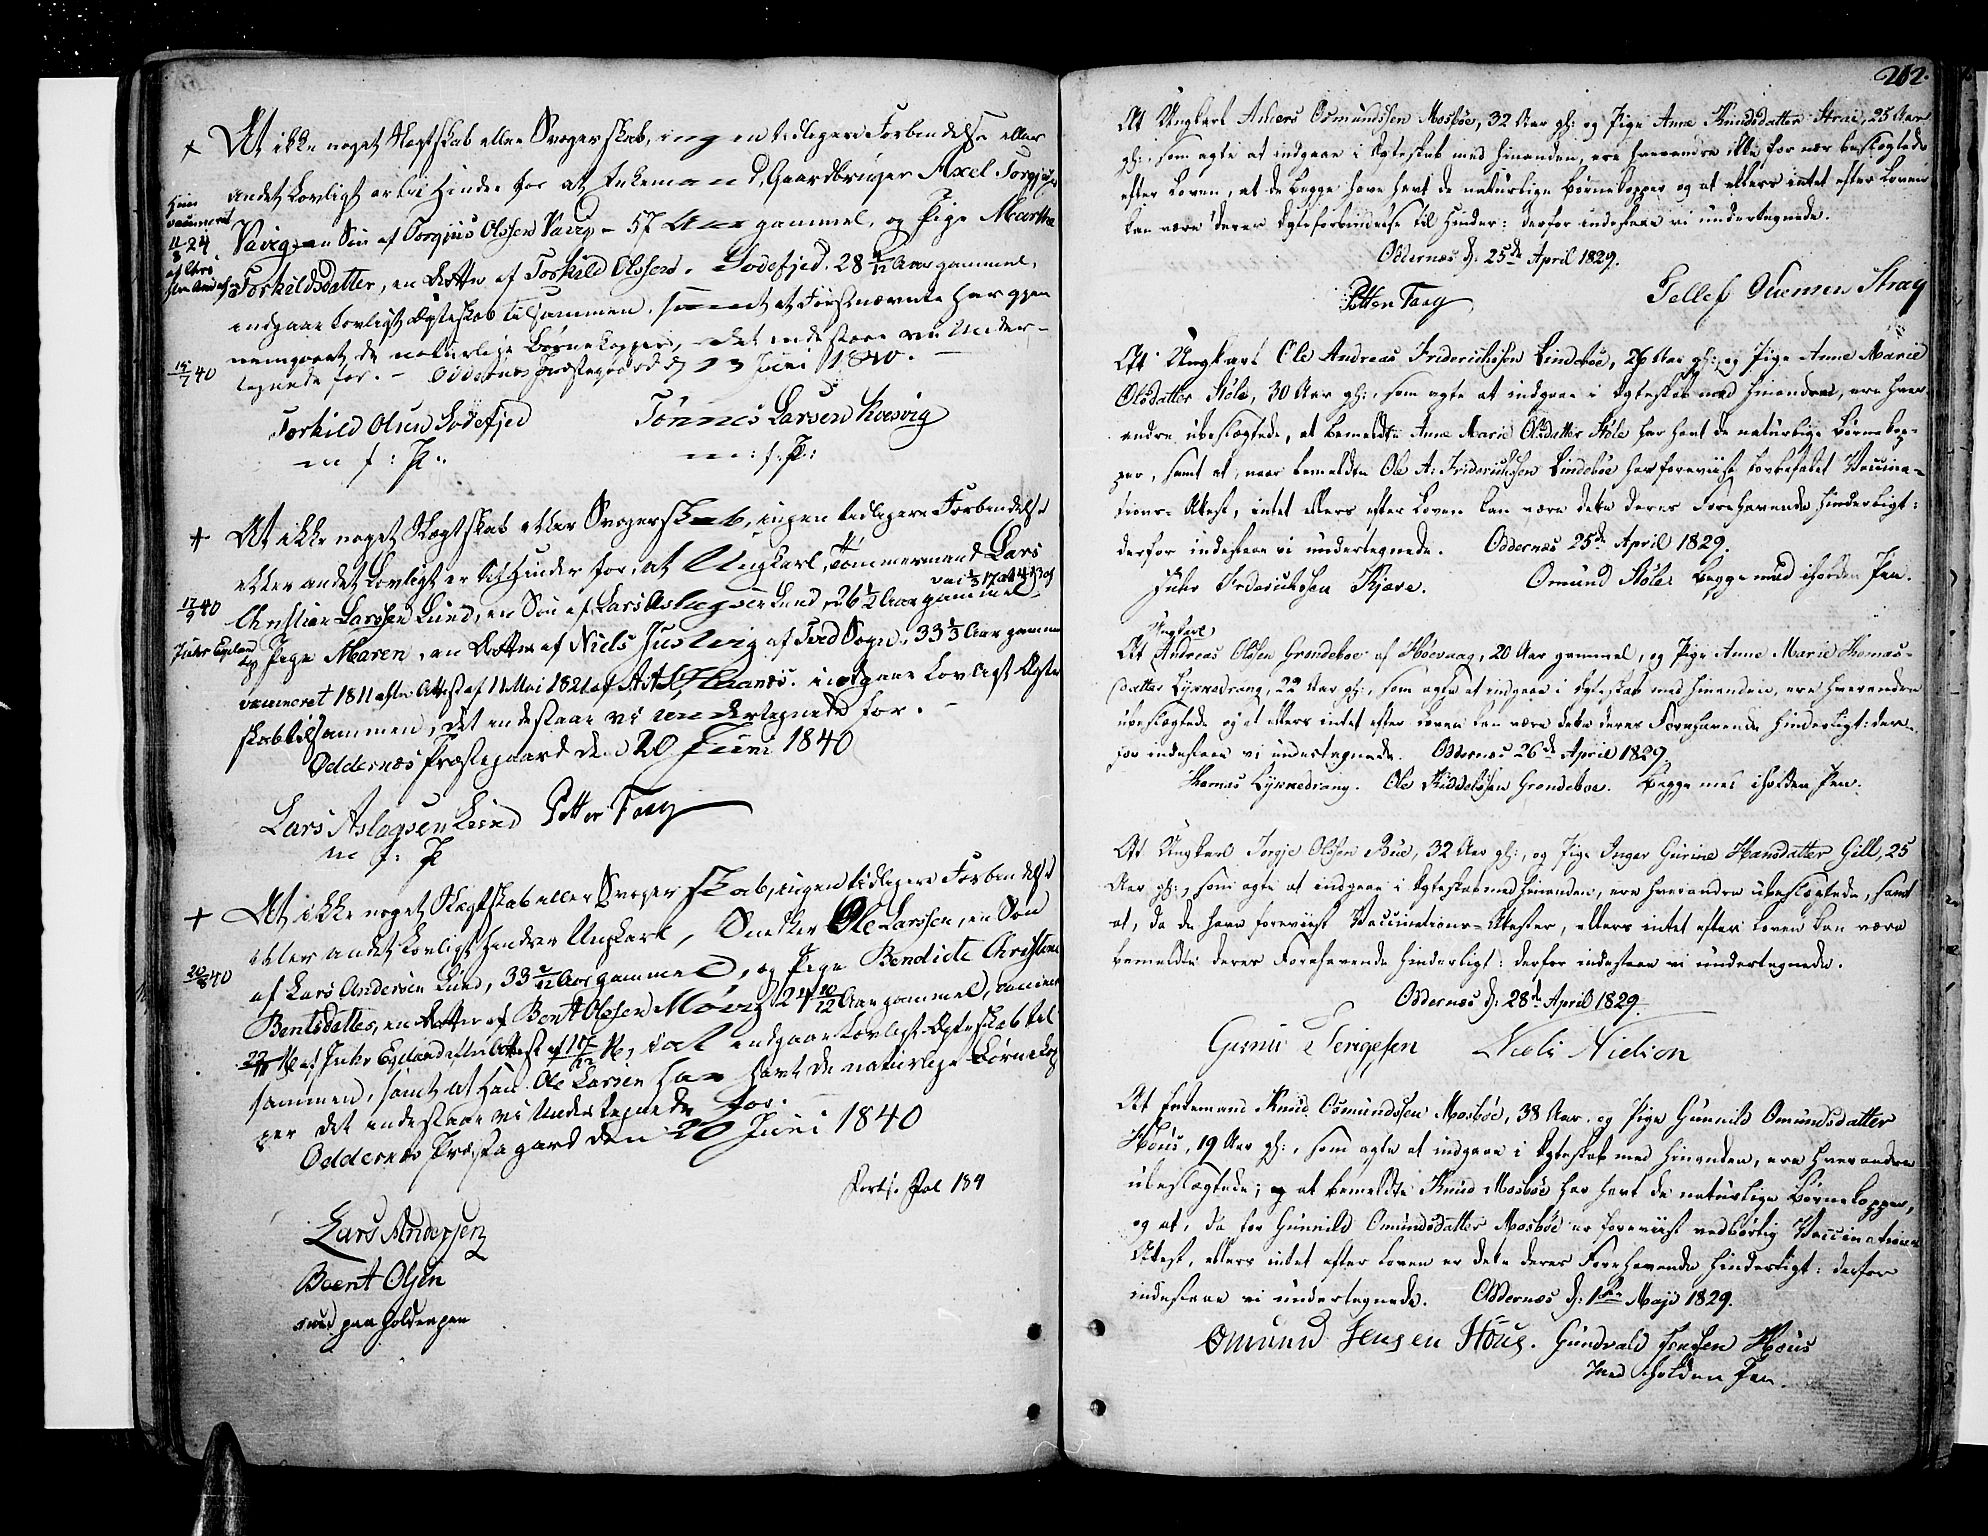 + At ikke noget Slægtskab eller Svogerskab, ingen tidligere Forbindelse eller
andet Lovligt er til Hinder for at Enkemand, Gaardbruger Axel Torgiusen
Vaarig, en Søn af Torgius Olssen Vaarig - 57 Aar gammel, og Pige Martha
Torkildsdatter, en Datter af Torkild Olssen Sodefjed, 28 Aar gammel,
indgaae Lovligt Ægteskab tilsammen, samt at Førstnævnte har gjen-
nemgaaet de naturlige Børnekopper, det indestaae vi Under-
tegnede for. - Oddernes Præstegaard d 13 Juni 1840. -
15/7 40
Torkild Olsen Sodefjed
m f: P:
Tønnes Larsen
m: f: P:
+ At ikke noget Slægtskab eller Svogerskab, ingen tidligere Forbindelse
eller andet Lovligt er til Hinder for, at Ungkarl, Tømmermand Lars
17/9 40
Christian Larssen Lund, en Søn af Lars Aslagsen Lund, 26 1/2 Aar gammel
og Pige Maren, en Datter af Niels Justvig af Tved Sogn, 33 1/3 Aar gammel
vaccineret 1811 efter Attest af 11 Mai 1821 af indgaae Lovligt Ægte-
skab tilsammen, det indestaae vi undertegnede for. -
Oddernes Præstegaard den 20 Juni 1840
Lars Aslagsen Lund
m f: P
Petter Taag
+ At ikke noget Slægtskab eller Svogerskab, ingen tidligere Forbindelse
eller andet Lovligt hindrer Ungkarl, Snedker Ole Larssen, en Søn
af Lars Andersen Lund, 33 Aar gammel, og Pige Bendicte Christine
Bentsdatter, en Datter af Bent Olssen Møvig 24 10/12 Aar gammel,
af Juhr Egeland efter Attest af indgaae Lovligt Ægteskab til
sammen, samt at Han Ole Larsen har havt de naturlige Børnekop
per det indestaae vi Undertegnede for. -
Oddernes Præstegaard den 20 Juni 1840
Forts. Pol 184
Lars Andersen
Beent Olsen
med paaholden pen
212.
At Ungkarl Anders Osmundssen Mosbøe, 32 Aar gl: og Pige Anne Knudsdatter Strai, 25 Aar
gl:, som agte at indgaae i Ægteskab med hinanden, ere hverandre ikke for nær beslægtede
efter Loven, at de begge have havt de naturlige Børnekopper og at ellers intet efter Loven
kan være deres Ægteforbindelse til Hinder: derfor indestaae vi undertegnede.
Oddernæs d. 25de April 1829.
Petter Taag
Tellef Strag
At Ungkarl Ole Andreas Friderichssen Lindebøe, 26 Aar gl: og Pige Anne Marie
Olsdatter Støle, 30 Aar gl:, som agte at indgaae i Ægteskab med hinanden, ere hver-
andre ubeslægtede, at bemeldte Anne Marie Olsdatter Støle har havt de naturlige Børnekop-
per, samt at, naar bemeldte Ole A: Friderichssen Lindebøe har foreviist lovbefalet Vaccina-
tions-Attest, intet ellers efter Loven kan være dette deres Forehavende hinderligt:
derfor indestaae vi undertegnede. Oddernæs 25de April 1829.
Juhr Frederichsen Kjære. Omund Støle begge med iholden Pen.
Ungkarl
At Andreas Olsen Grondeboe af Høevaag, 20 Aar gammel, og Pige Anne Marie Thomas-
datter Lyxnedrang, 22 Aar gl:, som agte at indgaae i Ægteskab med hinanden, ere hverandre
ubeslægtede og at ellers intet efter Loven kan være dette deres Forehavende hinderligt: der-
for indestaae vi undertegnede. Oddernæs 26de April 1829.
Thomas Lyxnedrang. Ole Grondeboe. begge med iholden Pen.
At Ungkarl Torgie Olssen Bue, 32 Aar gl:, og Pige Inger Gurine Hansdatter Gill, 25
Aar gl:, som agte at indgaae i Ægteskab med hinanden, ere hverandre ubeslægtede, samt
at, da de have foreviist Vaccinations-Attester, ellers intet efter Loven kan være
bemeldte deres Forehavende hinderligt: derfor indestaae vi undertegnede.
Oddernæs d. 28de April 1829.
Niels Nielson
At Enkemand Knud Osmundssen Mosbøe, 38 Aar og Pige Gunnild Omundsdatter
Høus, 19 Aar gl:, som agte at indgaae i Ægteskab med hinanden, ere hverandre
ubeslægtede; og at bemeldte Knud Mosbøe har havt de naturlige Børnekopper,
og at, da for Gunnild Omundsdatter Mosbøe er foreviist vedbørlig Vaccinations
Attest, ellers intet efter Loven er dette deres Forehavende hinderligt: derfor
indestaae vi undertegnede. Oddernæs d: 1ste Maji 1829.
Omund Jensen Høus. Gundvald Jensen Høus
med iholden Pen.